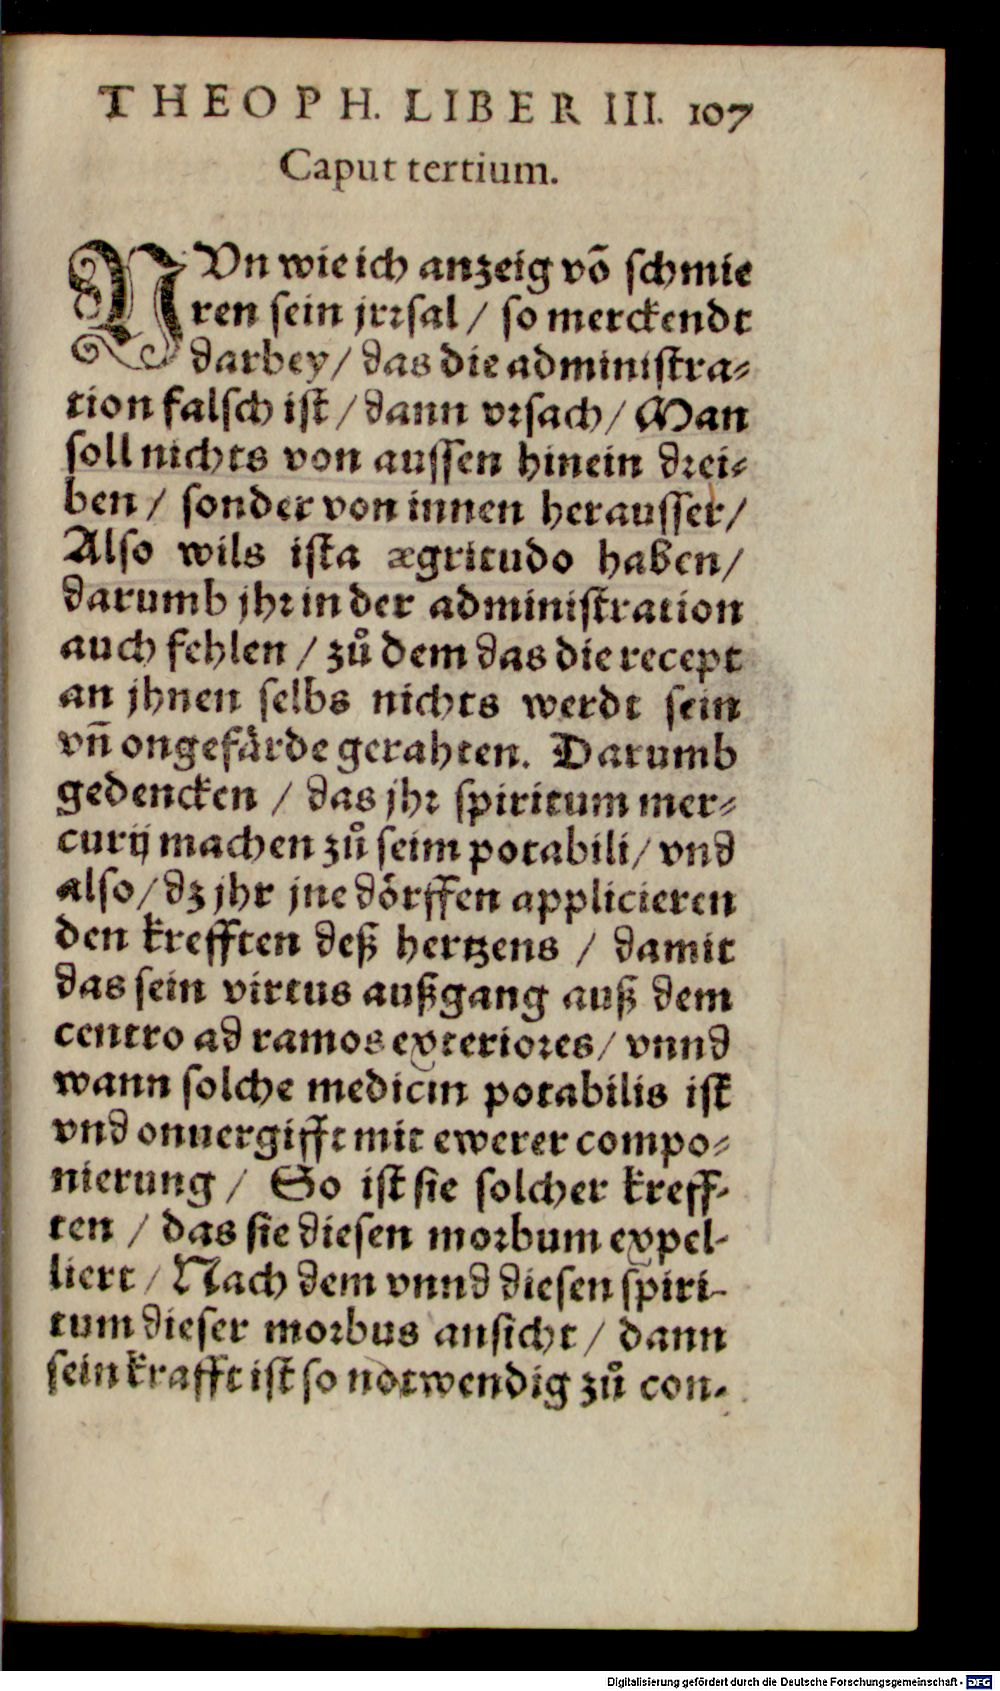 THEOPH. LIBER III. 107
Caput tertium.
NVn wie ich anzeig võ schmie
ren sein jrrsal / so merckendt
darbey / das die administra-
tion falsch ist / dann vrsach / Man
soll nichts von aussen hinein drei-
ben / sonder von innen herausser /
Also wils ista ægritudo haben /
darumb jhr in der administration
auch fehlen / zů dem das die recept
an jhnen selbs nichts werdt sein
vñ ongefärde gerahten. Darumb
gedencken / das jhr spiritum mer-
curij machen zů seim potabili / vnd
also / dz jhr jne dörffen applicieren
den krefften deß hertzens / damit
das sein virtus außgang auß dem
centro ad ramos exteriores / vnnd
wann solche medicin potabilis ist
vnd onuergifft mit ewerer compo-
nierung / So ist sie solcher kreff-
ten / das sie diesen morbum expel-
liert / Nach dem vnnd diesen spiri-
tum dieser morbus ansicht / dann
sein krafft ist so notwendig zů con-
Digitalisierung gefördert durch die Deutsche Forschungsgemeinschaft - DFG